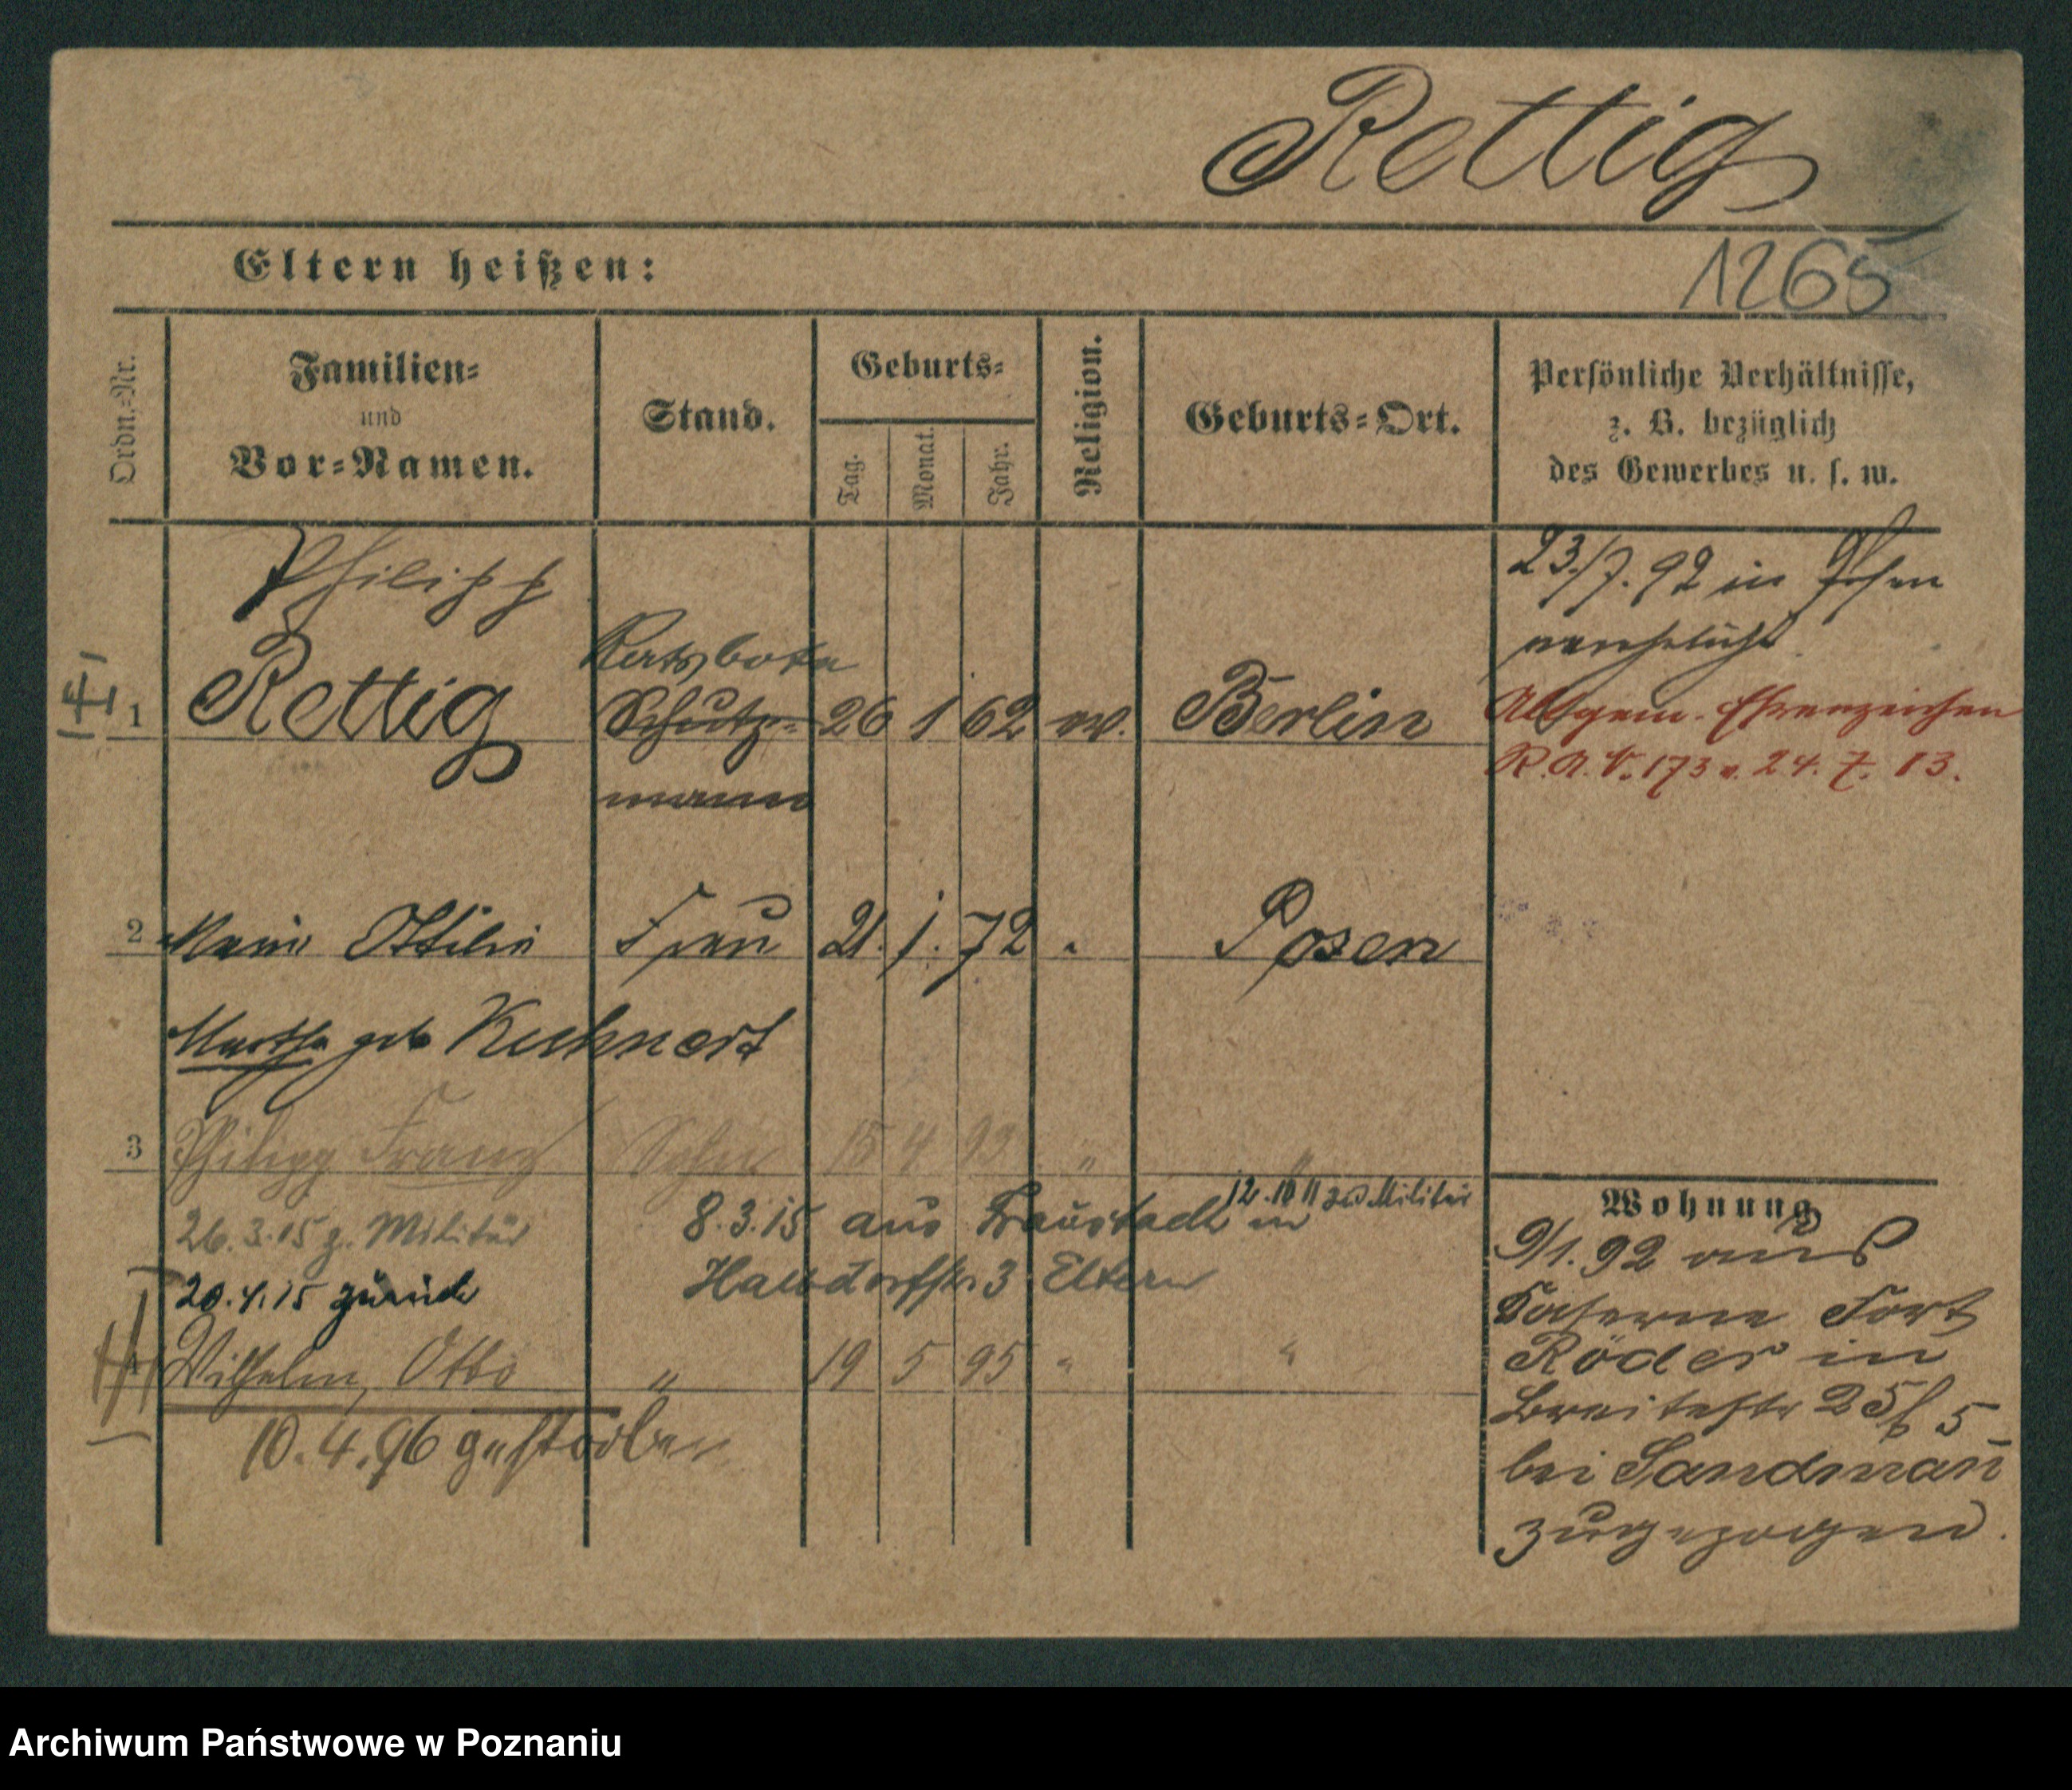 Rettig
1265
Eltern heißen:
Ordn.-Nr.
Familien-
und
Vor-Namen.
Stand.
Geburts-
Tag.
Monat.
Jahr.
Religion.
Geburts-Ort.
Persönliche Verhältnisse,
z. B. bezüglich
des Gewerbes u. s. w.
Philipp
Ratsbote
1 Rettig Schutz- 26 1 62 ev. Berlin
mann
23./7. 92 in Posen
verehelicht.
Allgem. Ehrenzeichen
R.A.V. 173 v. 24. 7. 13.
2 Marie Ottilie Frau 21. 1. 72 " Posen
Martha geb Kuhnert
3 Philipp Franz Sohn 15 4 93 " "
12.10 11 zu Militär
26.3.15 z. Militär 8.3.15 aus in
20.4.15 zurück Halbdorfstr. 3 Eltern
Wilhelm, Otto " 19 5 95 " "
10.4.96 gestorben
Wohnung
9/1.92 aus
Kaserne Fort
Röder in
Breitestr 25 5
bei Sandmañ
zugezogen.
Archiwum Państwowe w Poznaniu